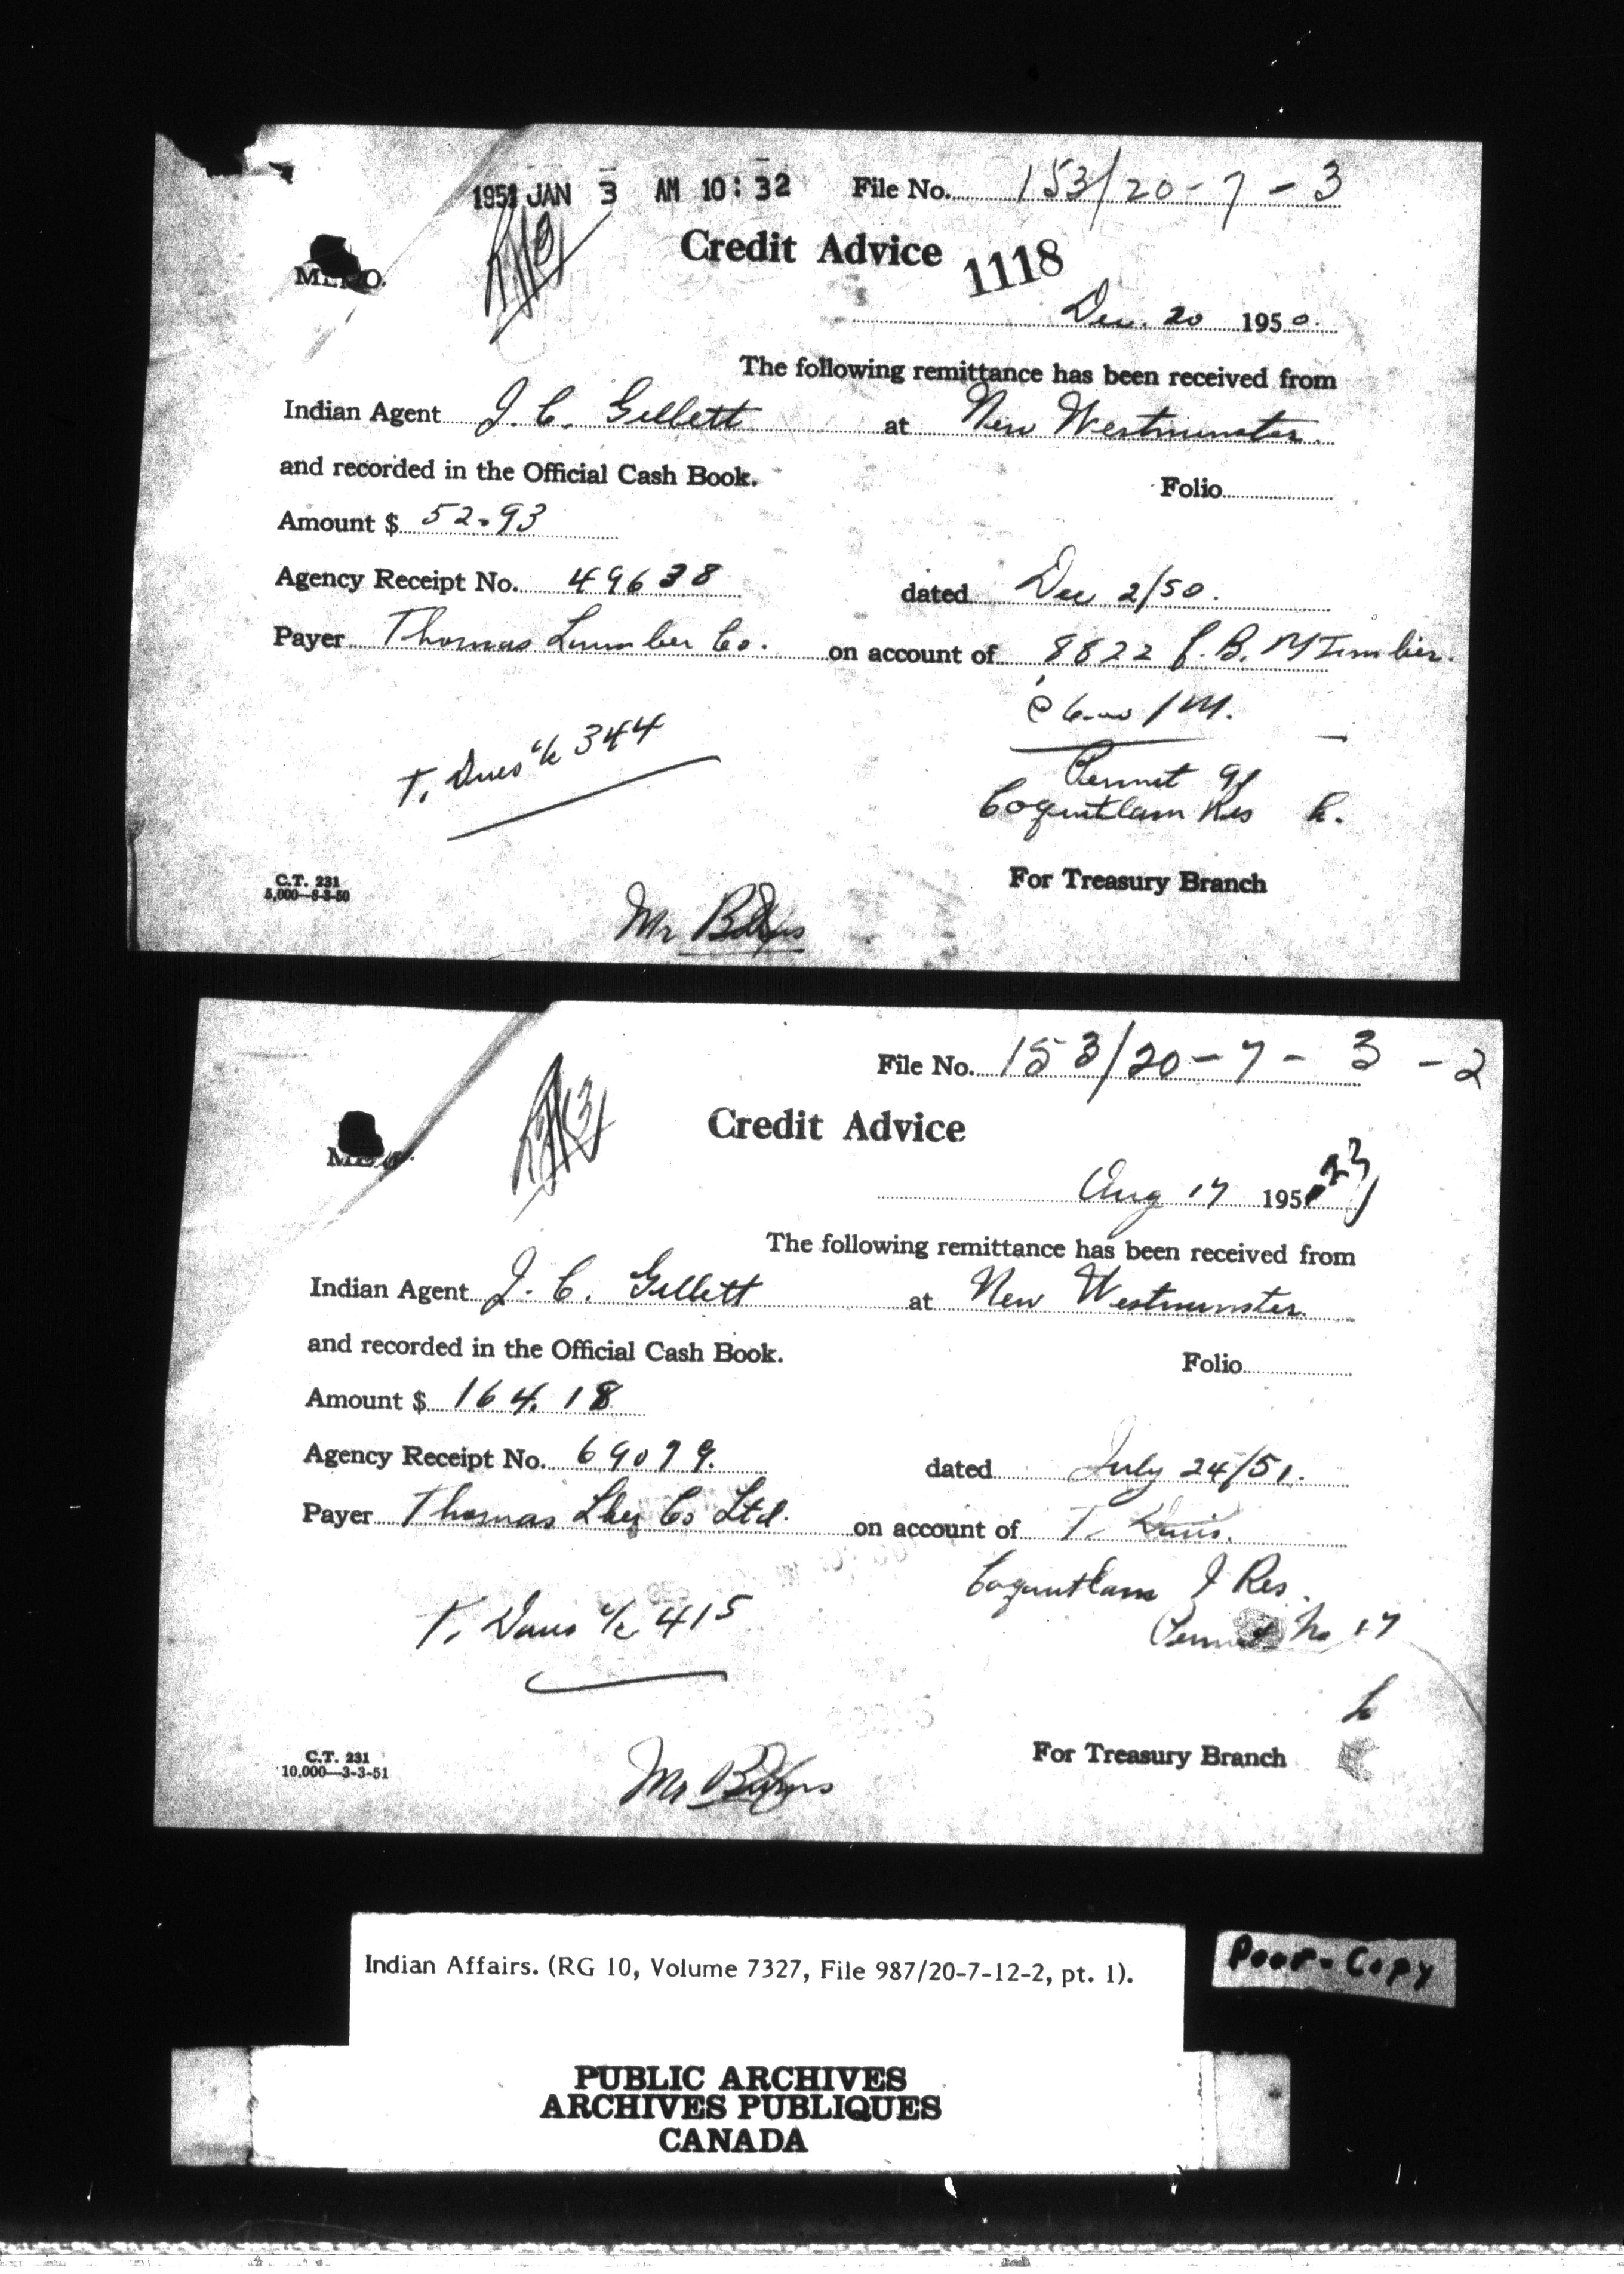 1951 JAN 3 AM 10:32 File No. 153/20-7-3
Credit Advice 1118
MEMO.
Dec. 20 1950.
The following remittance has been received from
Indian Agent J. C. Gillett at New Westminster.
and recorded in the Official Cash Book. Folio
Amount $ 52.93
Agency Receipt No. 49638 dated Dec 2/50.
Payer Thomas Lumber Co. on account of 8822 f.B.M Timber.
@ 6.00 /M.
T. Dues a/c 344
Permit 91
Coquitlam Res
C.T. 231
5,000—8-3-50
For Treasury Branch
Mr
File No. 153/20-7-3-2
Credit Advice
MEMO.
Aug 17 1951
The following remittance has been received from
Indian Agent J. C. Gillett at New Westminster.
and recorded in the Official Cash Book. Folio
Amount $ 164.18
Agency Receipt No. 69079. dated July 24/51.
Payer Thomas Lber Co Ltd. on account of T. Dues.
Coquitlam I Res.
T. Dues a/c 415
Permit No 17
C.T. 231
10,000—3-3-51
For Treasury Branch
Mr
Indian Affairs. (RG 10, Volume 7327, File 987/20-7-12-2, pt. 1).
Poor-Copy
PUBLIC ARCHIVES
ARCHIVES PUBLIQUES
CANADA